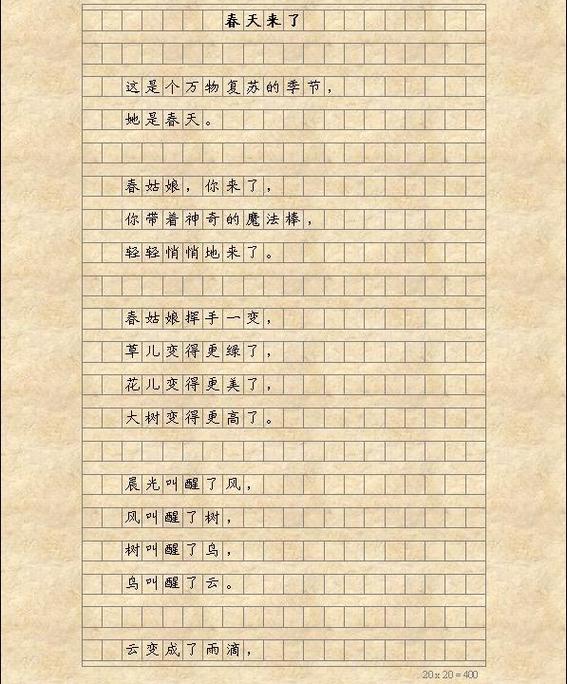 春天来了
这是个万物复苏的季节，
她是春天。
春姑娘，你来了，
你带着神奇的魔法棒，
轻轻悄悄地来了。
春姑娘挥手一变，
草儿变得更绿了，
花儿变得更美了，
大树变得更高了。
晨光叫醒了风，
风叫醒了树，
树叫醒了鸟，
鸟叫醒了云。
云变成了雨滴，
20 x 20 = 400